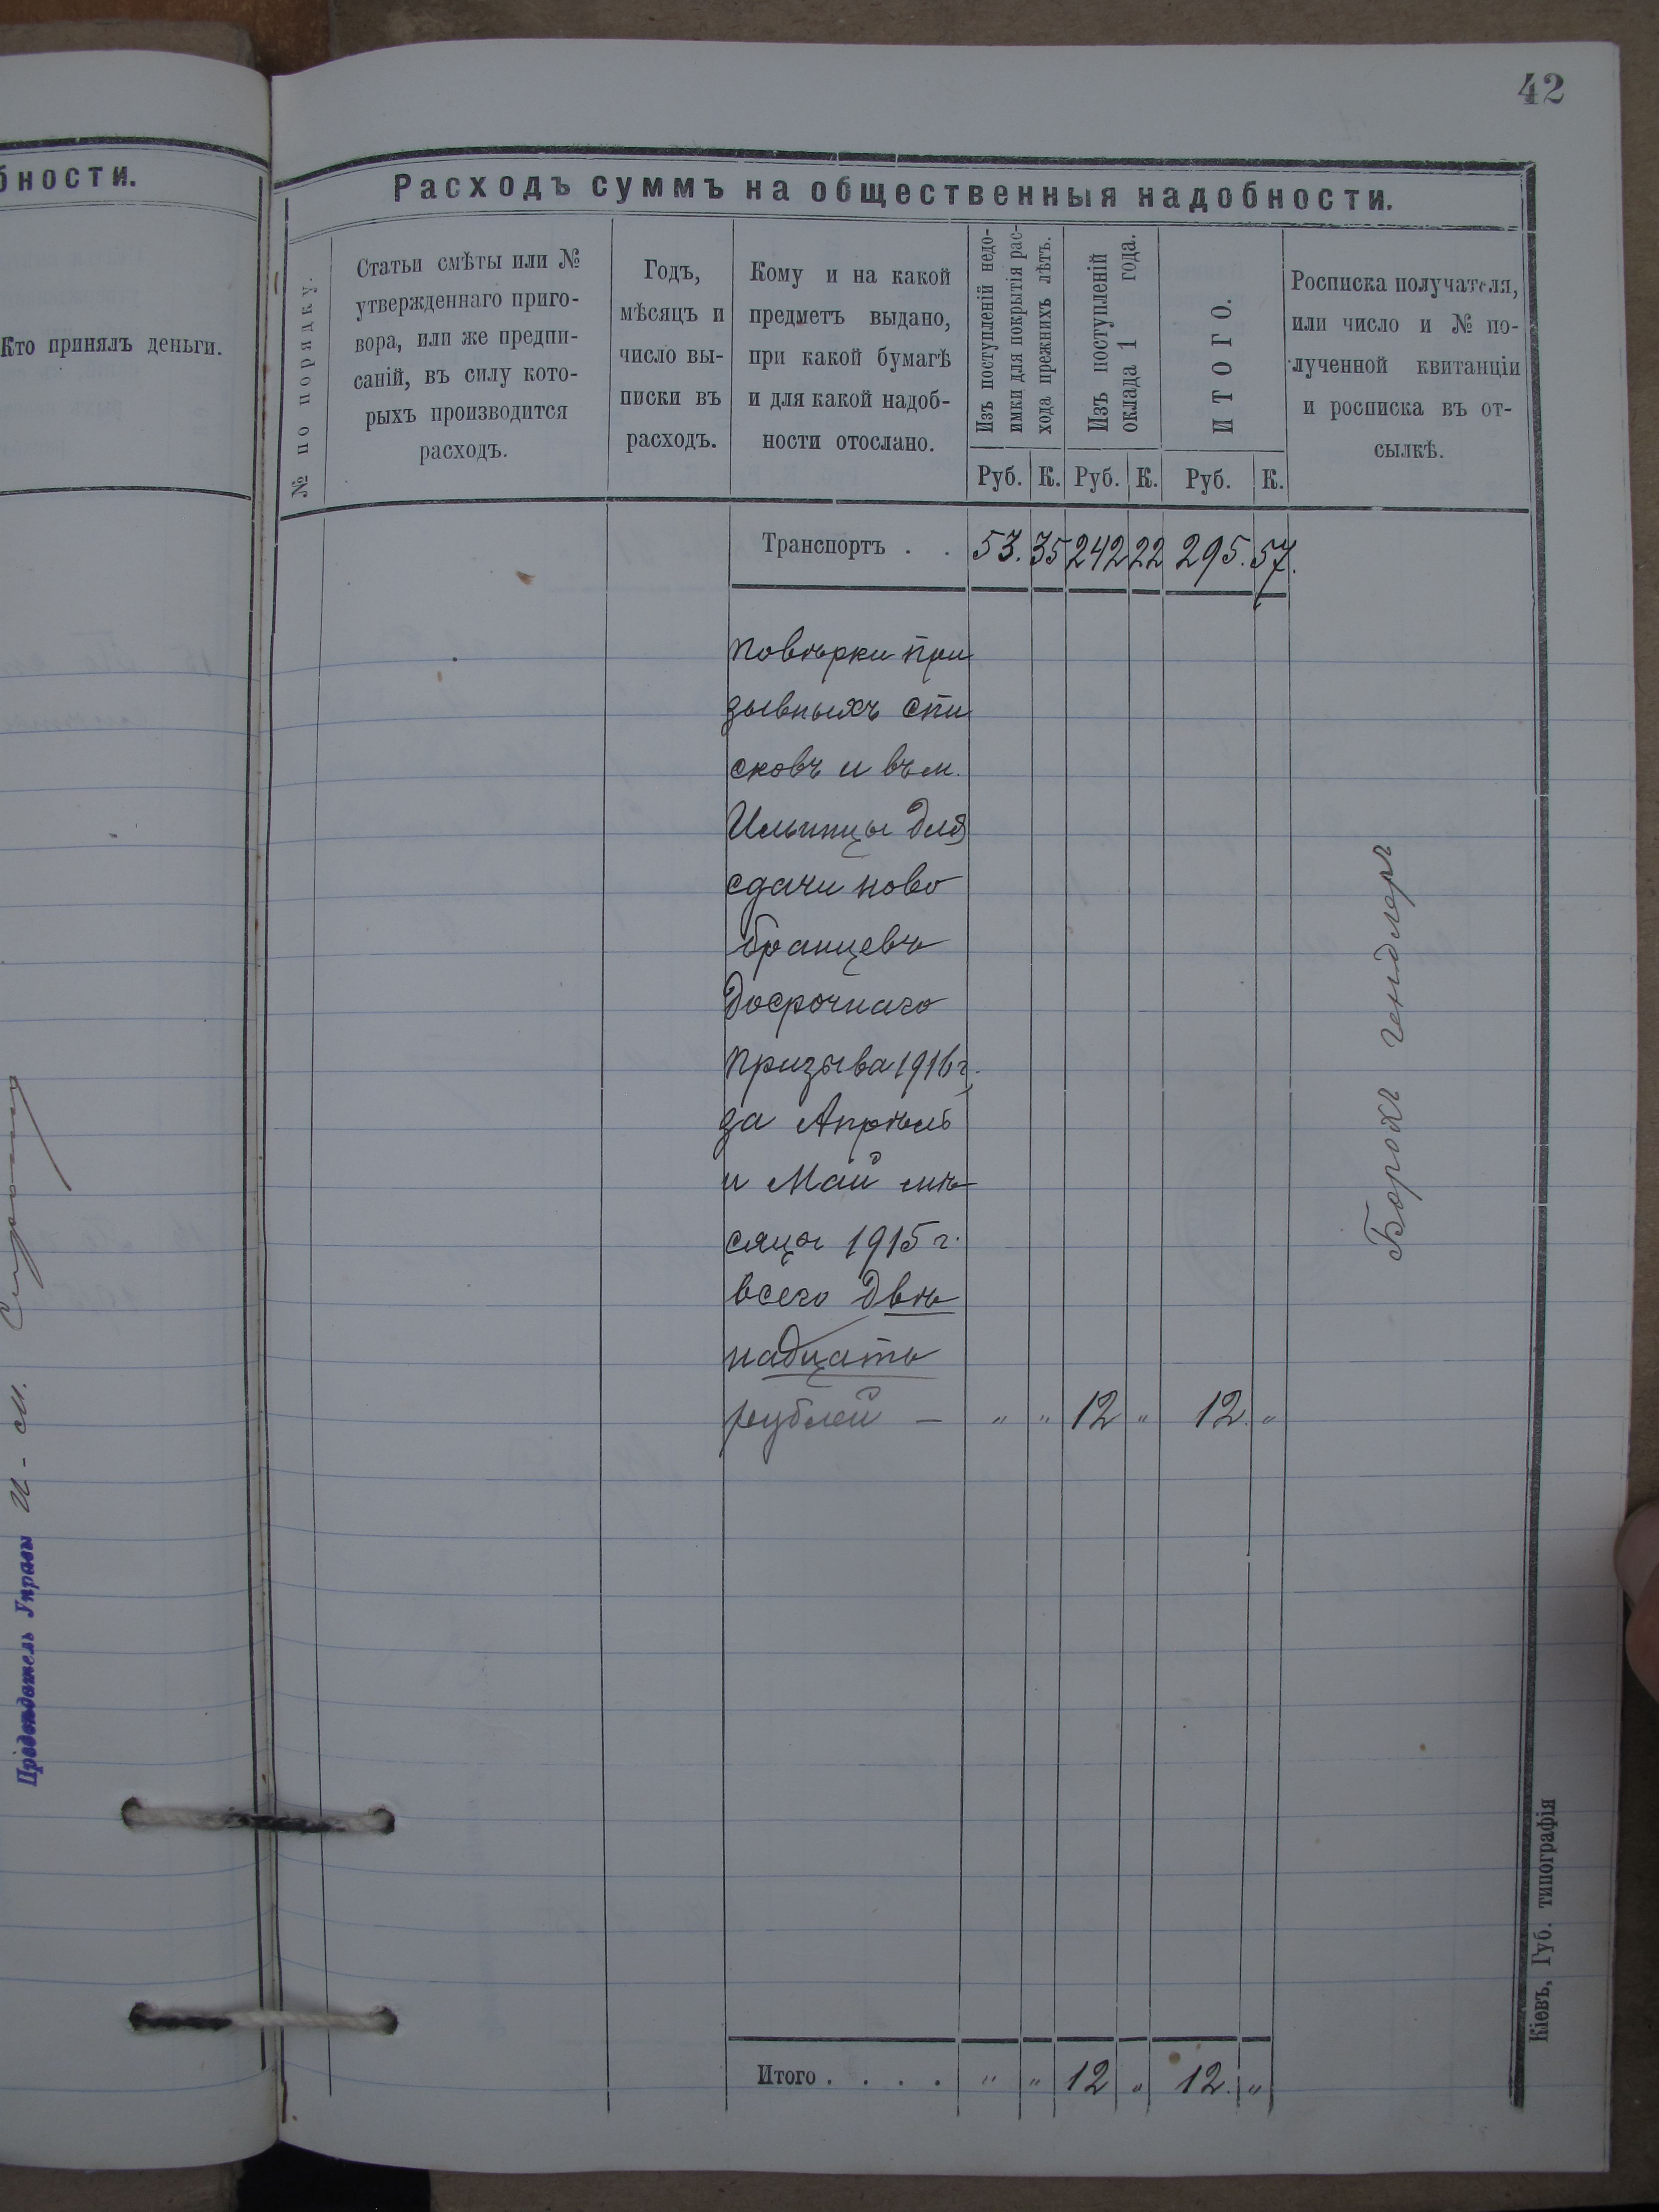 42
бности.
Кто принялъ деньги.
Предсѣдатель Управы И-М.
Расходъ суммъ на общественныя надобности.
№ по порядку.
Статьи смѣты или №
утвержденнаго приго-
вора, или же предпи-
саній, въ силу кото-
рыхъ производится
расходъ.
Годъ,
мѣсяцъ и
число вы-
писки въ
расходъ.
Кому и на какой
предметъ выдано,
при какой бумагѣ
и для какой надоб-
ности отослано.
Изъ поступленій недо-
имки для покрытія рас-
хода прежнихъ лѣтъ.
Изъ поступленій
оклада 1 года.
ИТОГО.
Росписка получателя,
или число и № по-
лученной квитанціи
и росписка въ от-
сылкѣ.
Руб. К. Руб. К. Руб. К.
Транспортъ . . 53. 35 242 22 295. 57.
повѣрки при
зывныхъ спи
сковъ и въ м.
Ильинцы для
сдачи ново
бранцевъ
досрочнаго
призыва 1916 г.
за Апрѣль
и Май мѣ
сяцы 1915 г.
всего двѣ
надцать
рублей — " " 12 " 12. "
Борохъ Гендлеръ
Итого . . . . " " 12 " 12. "
Кіевъ, Губ. типографія